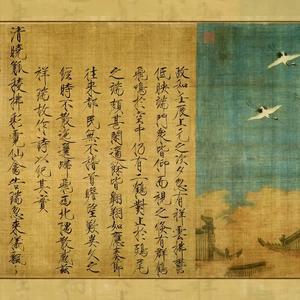 政和壬辰上元之次夕忽有祥雲拂鬱
低映端門眾皆仰而視之倏有群鶴
飛鳴於空中仍有二鶴對止於鴟尾
之端頗甚閒適餘皆翱翔如應奏節
往來都民無不稽首瞻望歎異久之
經時不散迤邐歸飛西北隅散感茲
祥瑞故作詩以紀其實
清曉觚稜拂彩霓仙禽告瑞忽來儀飄